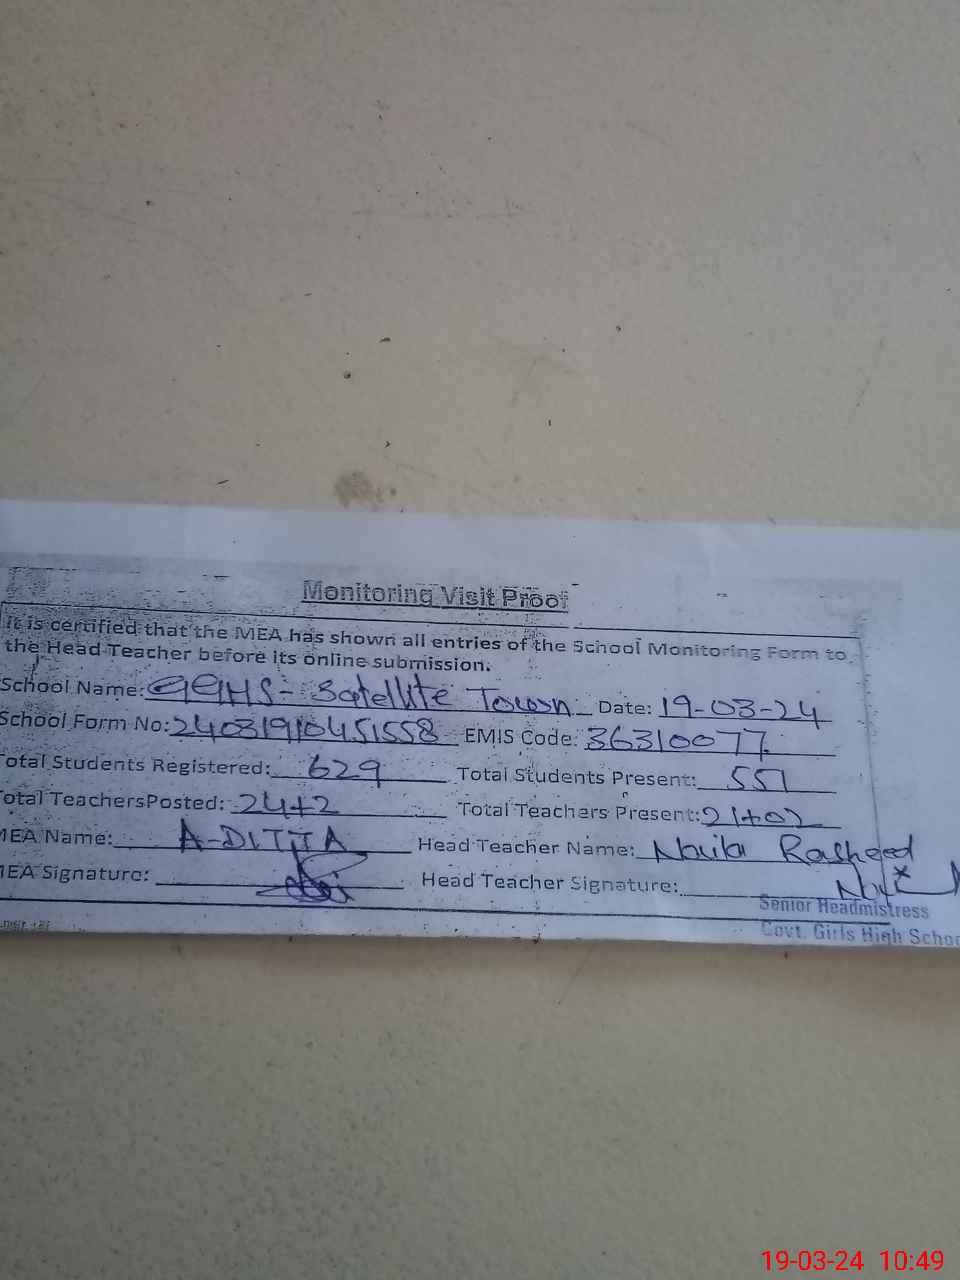 Monitoring Visit Proof
It is certified that the MEA has shown all entries of the School Monitoring Form to
the Head Teacher before its online submission.
School Name: GGHS- Satellite Town Date: 19-03-24
School Form No: 24031910451558 EMIS Code: 36310077
Total Students Registered: 629 Total Students Present: 551
Total TeachersPosted: 24+2 Total Teachers Present: 21+02
MEA Name: A-DITTA Head Teacher Name: Naila Rasheed
MEA Signature: Head Teacher Signature:
Senior Headmistress
Govt. Girls High School
19-03-24 10:49